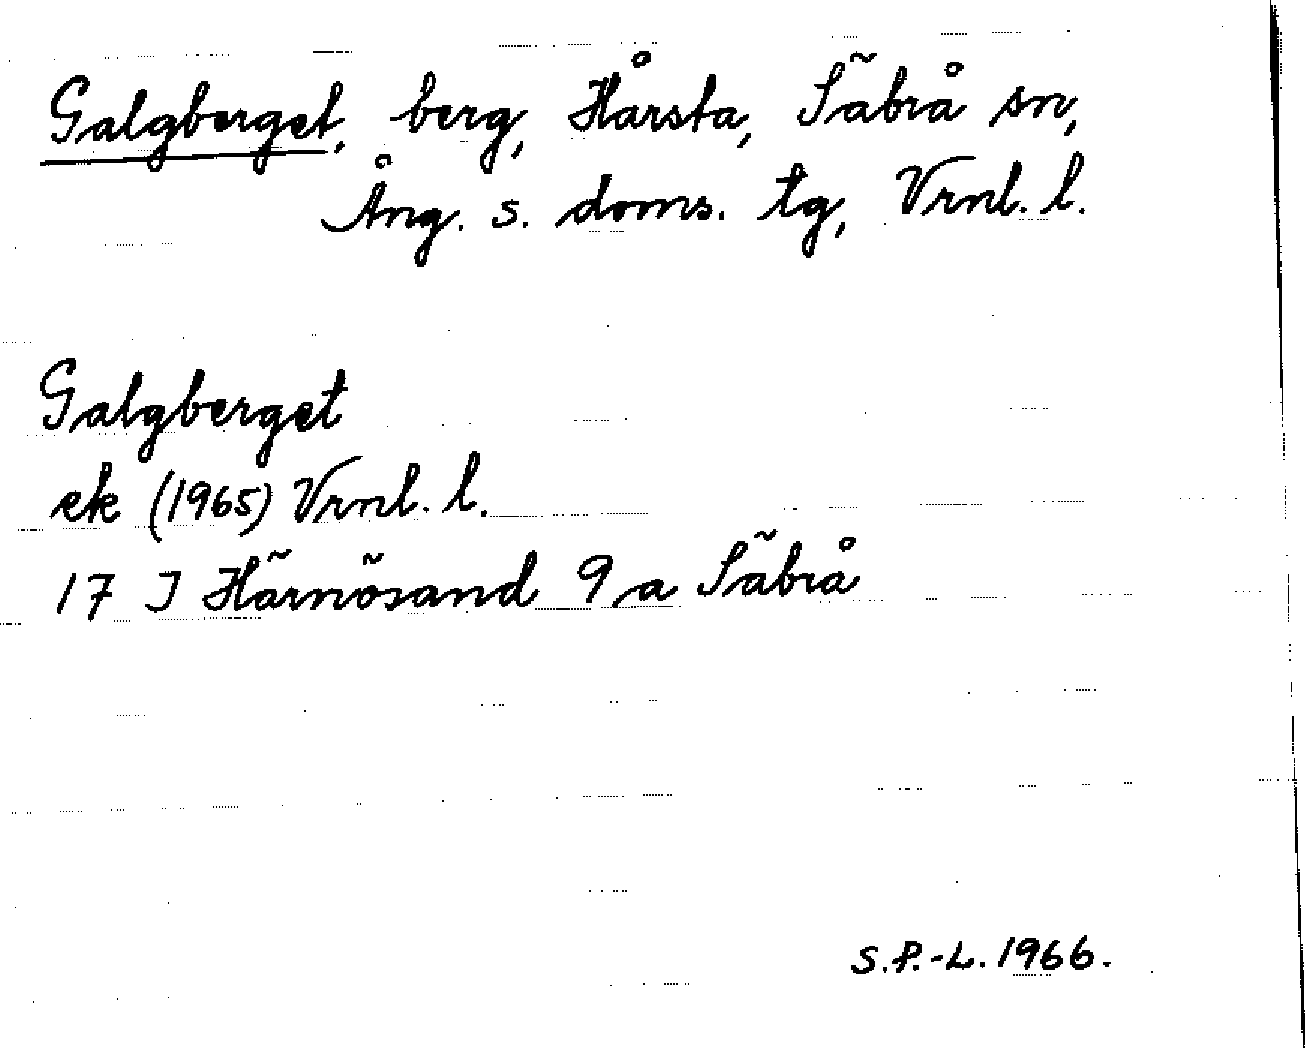 Galgberget, berg, Hårsta, Säbrå sn,
Ång. s. doms. tg, Vrnl. l.
Galgberget
ek (1965) Vrnl. l.
17 J Härnösand 9 a Säbrå
S.P.-L. 1966.